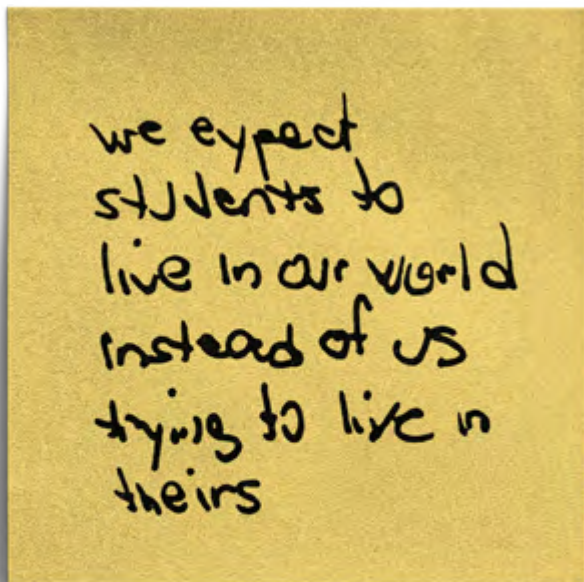 we expect
students to
live in our world
instead of us
trying to live in
theirs